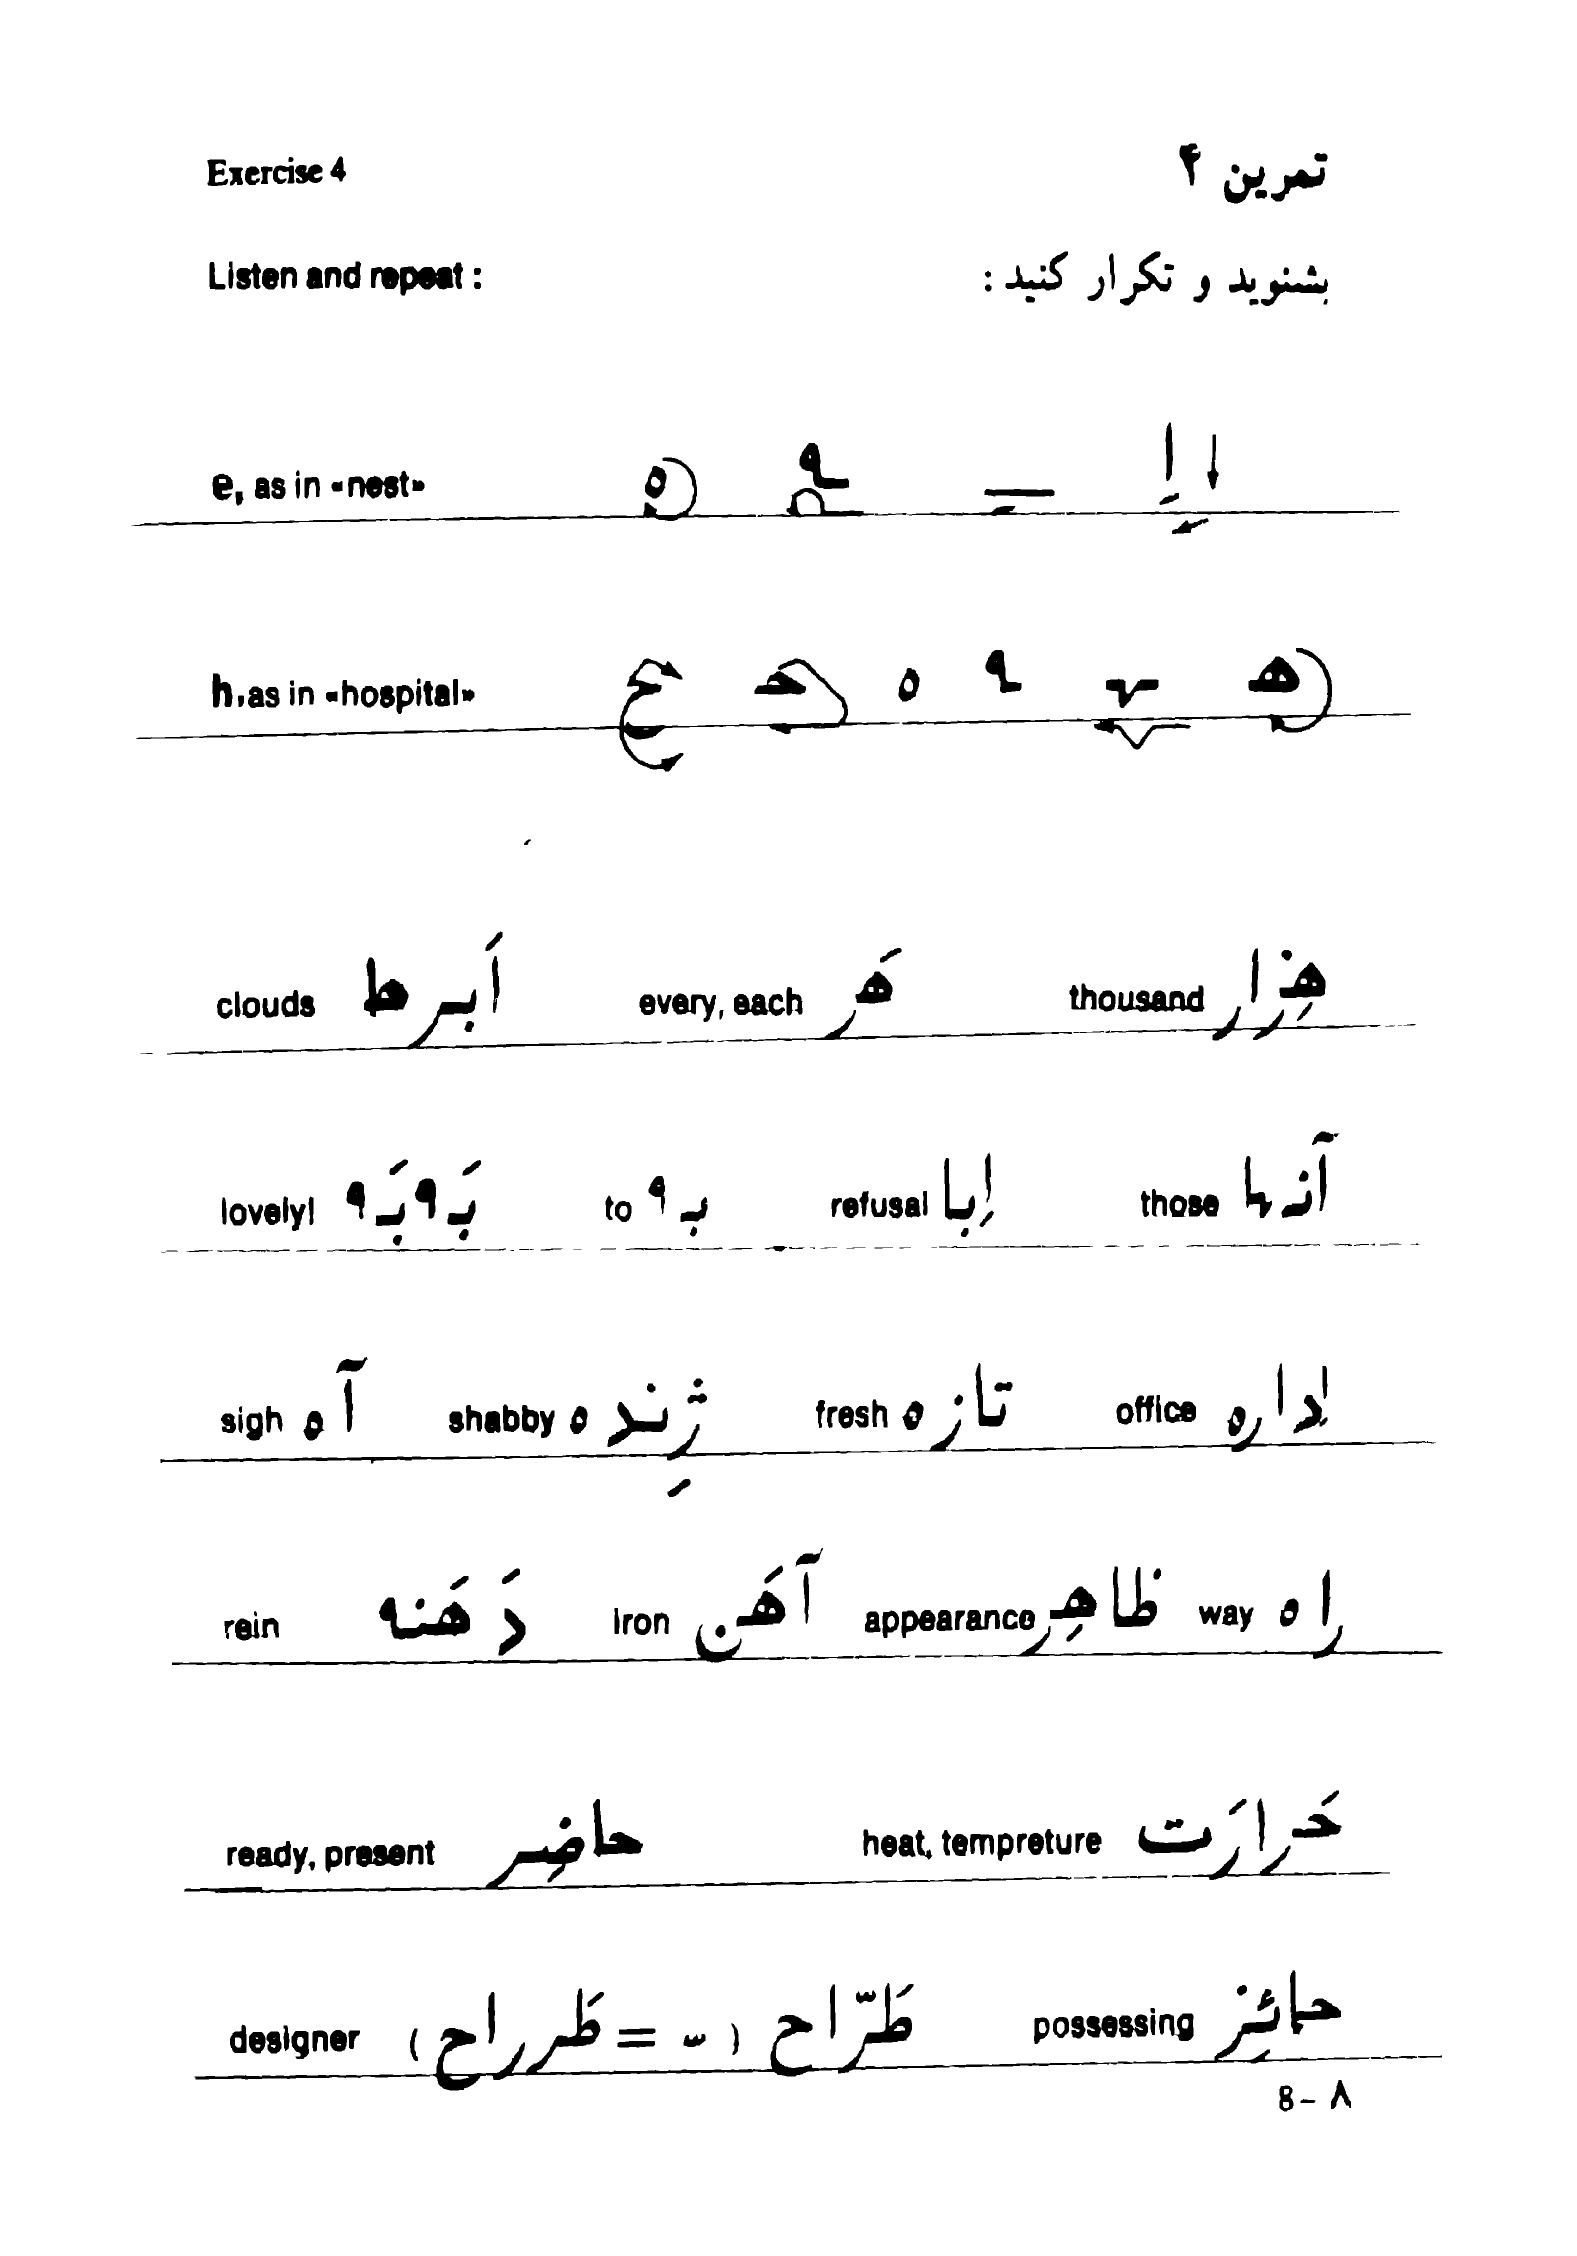 Exercise 4 تمرین ۴
Listen and repeat : بشنوید و تکرار کنید :
e, as in «nest» ه ـه ـِ اِ
h, as in «hospital» ح حـ ه ـه ـهـ هـ
clouds اَبرط every, each هَر thousand هِزار
lovely! بَه بَه to به refusal اِبا those آنها
sigh آه shabby ژِنده fresh تازه office اِداره
rein دَهَنه Iron آهَن appearance ظاهِر way راه
ready, present حاضِر heat, tempreture حَرارَت
designer ( طَرراح = ـّ ) طَرّاح possessing حائِز
8 - ۸